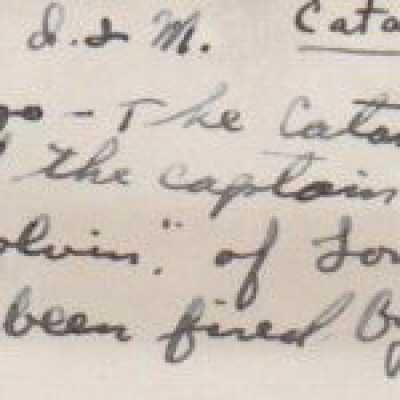 I. & M. Cata
go - The Cata
the captain
olvin". of Lou
been fined by